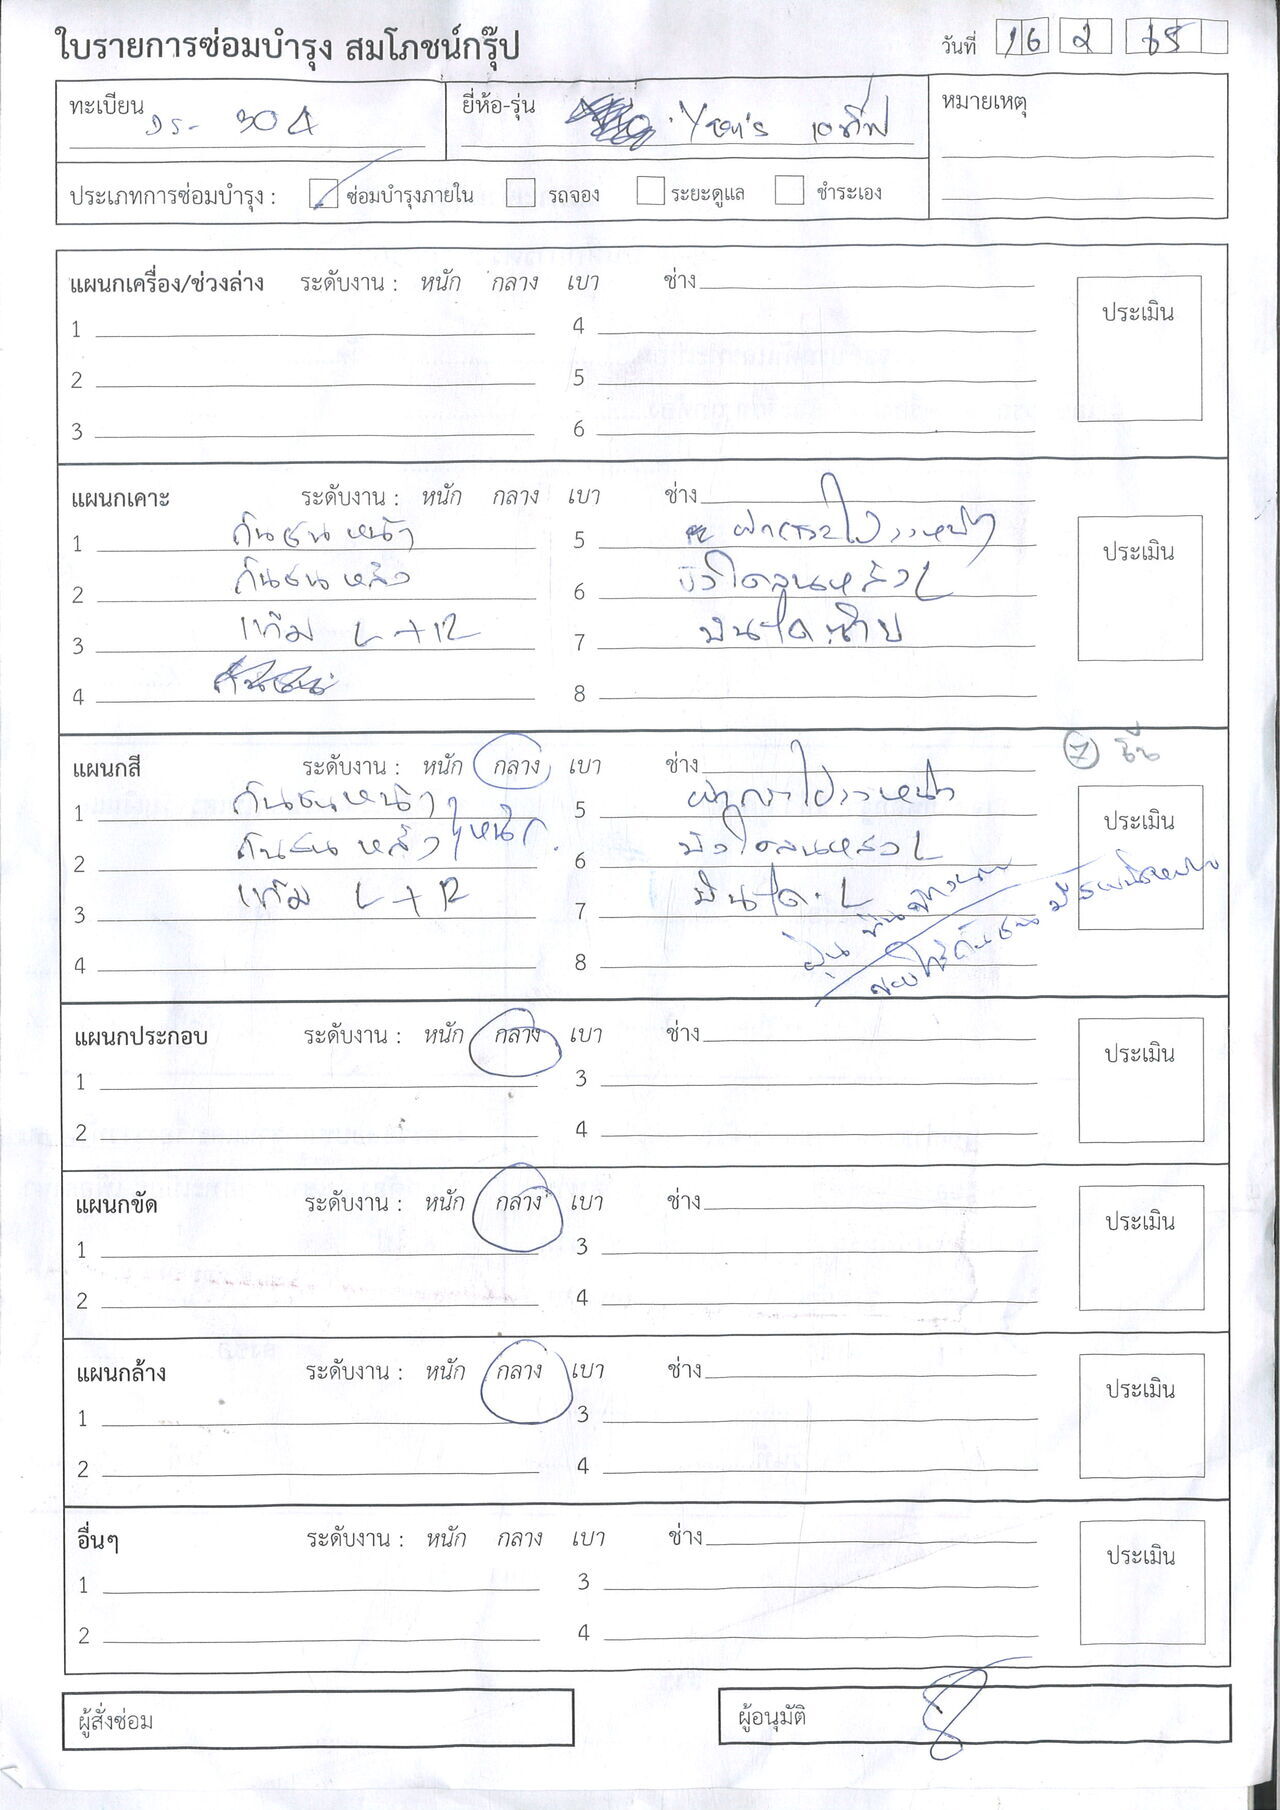 ใบรายการซ่อมบำรุง สมโภชน์กรุ๊ป
วันที่ 16 2 65
ทะเบียน 304
ยี่ห้อ-รุ่น Yaris เอทีฟ
หมายเหตุ
ประเภทการซ่อมบำรุง : ซ่อมบำรุงภายใน รถจอง ระยะดูแล ชำระเอง
แผนกเครื่อง/ช่วงล่าง ระดับงาน : หนัก กลาง เบา ช่าง
ประเมิน
1 4
2 5
3 6
แผนกเคาะ ระดับงาน : หนัก กลาง เบา ช่าง
ประเมิน
1 กันชนหน้า 5 ฝากระโปรงหน้า
2 กันชนหลัง 6 บังโคลนหลัง L
3 แก้ม L + R 7 บันได ซ้าย
4 8
แผนกสี ระดับงาน : หนัก กลาง เบา ช่าง
7 ชิ้น
ประเมิน
1 กันชนหน้า 5 ฝากระโปรงหน้า
2 กันชนหลัง หนัก 6 บังโคลนหลัง L
3 แก้ม L + R 7 บันได L
4 8
แผนกประกอบ ระดับงาน : หนัก กลาง เบา ช่าง
ประเมิน
1 3
2 4
แผนกขัด ระดับงาน : หนัก กลาง เบา ช่าง
ประเมิน
1 3
2 4
แผนกล้าง ระดับงาน : หนัก กลาง เบา ช่าง
ประเมิน
1 3
2 4
อื่นๆ ระดับงาน : หนัก กลาง เบา ช่าง
ประเมิน
1 3
2 4
ผู้สั่งซ่อม
ผู้อนุมัติ